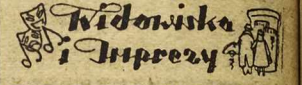 Widowiska
i Imprezy